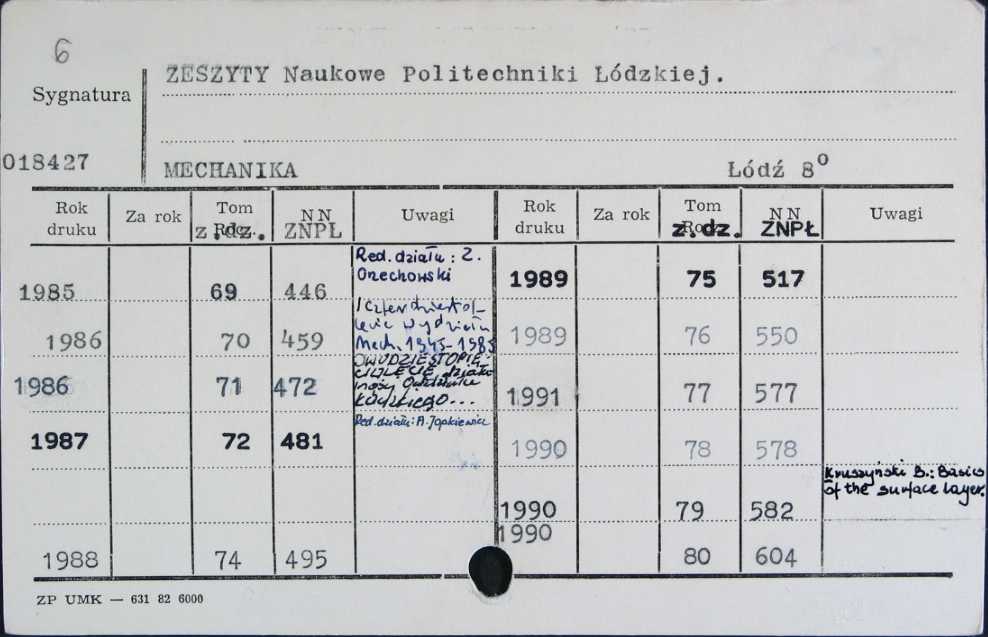 6
ZESZYTY Naukowe Politechniki Łódzkiej.
Sygnatura
018427
MECHANIKA Łódź 8º
Rok druku Za rok Tom z.dz. NN ZNPŁ Uwagi Rok druku Za rok Tom z.dz. NN ZNPŁ Uwagi
Red. działu: Z. Orzechowski
1985 69 446 1989 75 517
Czterdziestolecie Wydziału Mech. 1945-1985
1986 70 459 1989 76 550
DWUDZIESTOPIĘCIOLECIE
1986 71 472 1991 77 577
Łódzkiego...
Red. działu: A. Jopkiewicz
1987 72 481 1990 78 578
Kruszyński B.: Basics of the surface layer.
1990 79 582
1990
1988 74 495 80 604
ZP UMK — 631 82 6000